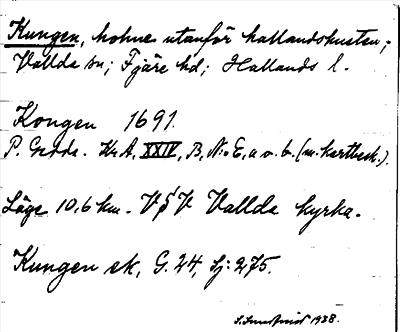 Kungen, holme utanför hallandskusten,
Vallda sn; Fjäre hd; Hallands l.
Kongen 1691.
P. Gedda. Kr. A, XXIV, B, N:o E, a o. b. (m. kartbeck.).
Läge 10,6 km. V§V Vallda kyrka.
Kungen ek, G. 24, Sj: 275.
1938.